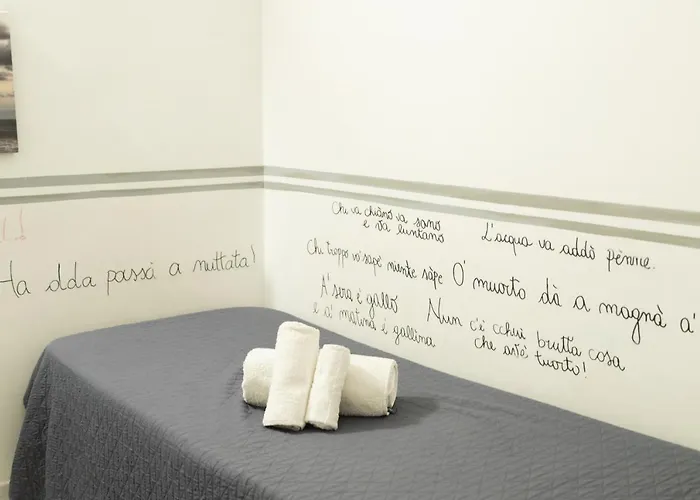 Ha dda passà a nuttata!
Chi va chiano va sano
e va luntano
L'acqua va addò pènne.
Chi troppo vo' sapé niente sàpe
O' muorto dà a magnà a'
A' sera è gallo
e a' matina è gallina
Nun c'è cchiù brutta cosa
che avé tuorto!